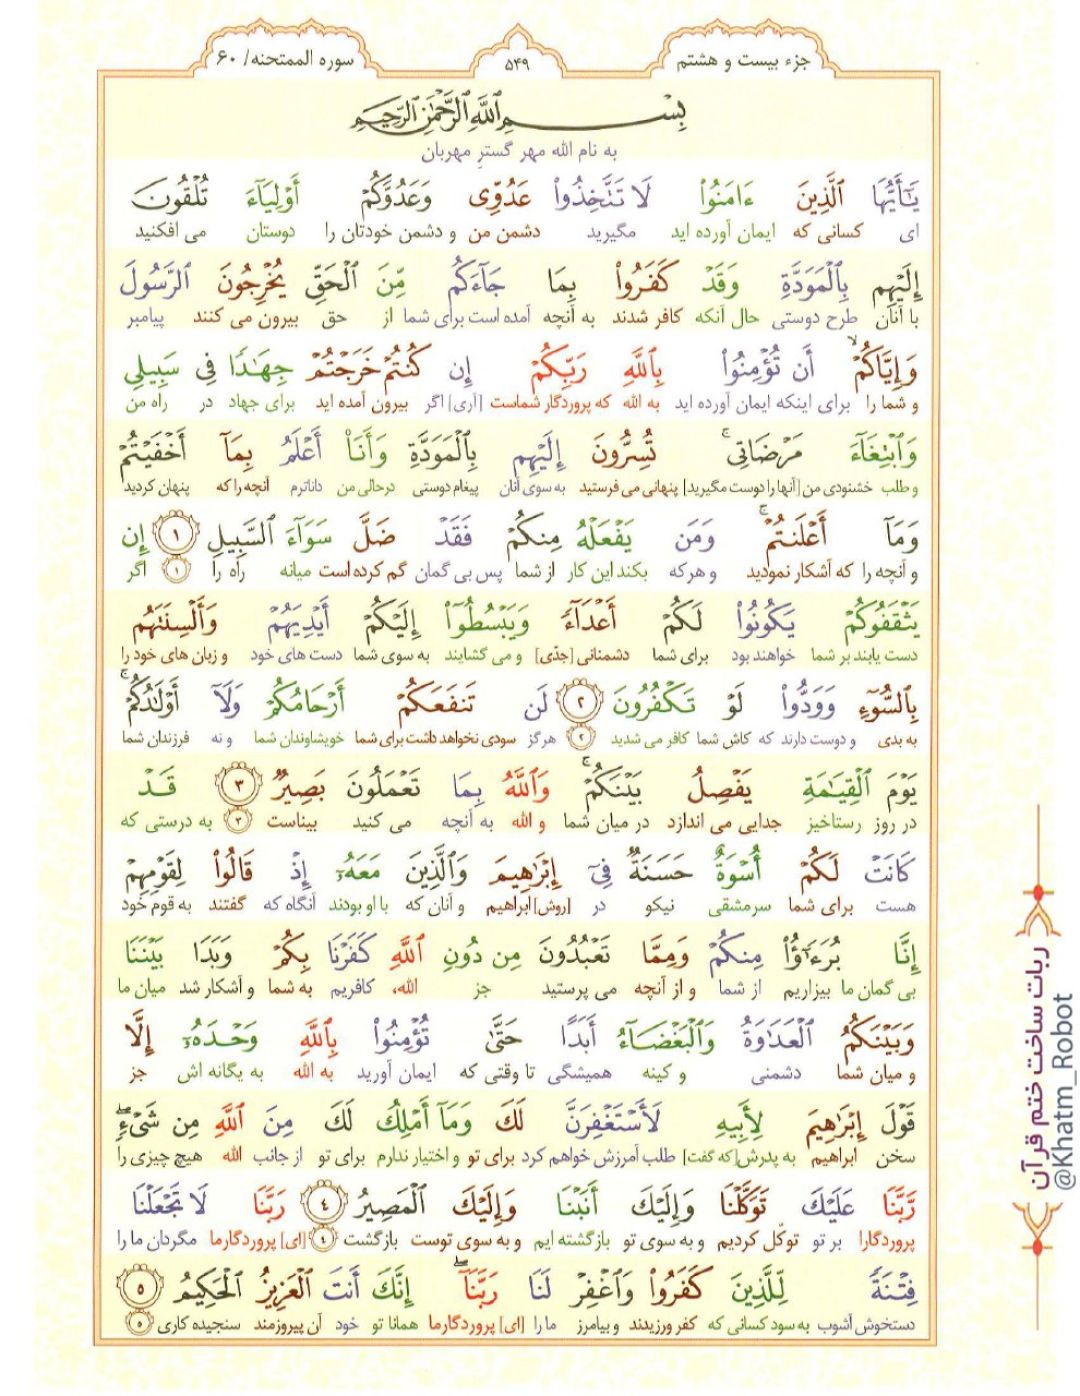 جزء بیست و هشتم
۵۴۹
سوره الممتحنه/ ۶۰
بِسْمِ ٱللَّهِ ٱلرَّحْمَٰنِ ٱلرَّحِيمِ
به نام الله مهر گستر مهربان
يَٰٓأَيُّهَا ٱلَّذِينَ ءَامَنُوا۟ لَا تَتَّخِذُوا۟ عَدُوِّى وَعَدُوَّكُمْ أَوْلِيَآءَ تُلْقُونَ
ای کسانی که ایمان آورده اید مگیرید دشمن من و دشمن خودتان را دوستان می افکنید
إِلَيْهِم بِٱلْمَوَدَّةِ وَقَدْ كَفَرُوا۟ بِمَا جَآءَكُم مِّنَ ٱلْحَقِّ يُخْرِجُونَ ٱلرَّسُولَ
با آنان طرح دوستی حال آنکه کافر شدند به آنچه آمده است برای شما از حق بیرون می کنند پیامبر
وَإِيَّاكُمْ ۙ أَن تُؤْمِنُوا۟ بِٱللَّهِ رَبِّكُمْ إِن كُنتُمْ خَرَجْتُمْ جِهَٰدًا فِى سَبِيلِى
و شما را برای اینکه ایمان آورده اید به الله که پروردگار شماست [آری] اگر بیرون آمده اید برای جهاد در راه من
وَٱبْتِغَآءَ مَرْضَاتِى ۚ تُسِرُّونَ إِلَيْهِم بِٱلْمَوَدَّةِ وَأَنَا۠ أَعْلَمُ بِمَآ أَخْفَيْتُمْ
و طلب خشنودی من [آنها را دوست مگیرید] پنهانی می فرستید به سوی آنان پیغام دوستی درحالی من داناترم آنچه را که پنهان کردید
وَمَآ أَعْلَنتُمْ ۚ وَمَن يَفْعَلْهُ مِنكُمْ فَقَدْ ضَلَّ سَوَآءَ ٱلسَّبِيلِ ١ إِن
و آنچه را که آشکار نمودید و هرکه بکند این کار از شما پس بی گمان گم کرده است میانه راه را ١ اگر
يَثْقَفُوكُمْ يَكُونُوا۟ لَكُمْ أَعْدَآءً وَيَبْسُطُوٓا۟ إِلَيْكُمْ أَيْدِيَهُمْ وَأَلْسِنَتَهُم
دست یابند بر شما خواهند بود برای شما دشمنانی [جدّی] و می گشایند به سوی شما دست های خود و زبان های خود را
بِٱلسُّوٓءِ وَوَدُّوا۟ لَوْ تَكْفُرُونَ ٢ لَن تَنفَعَكُمْ أَرْحَامُكُمْ وَلَآ أَوْلَٰدُكُمْ ۚ
به بدی و دوست دارند که کاش شما کافر می شدید ٢ هرگز سودی نخواهد داشت برای شما خویشاوندان شما و نه فرزندان شما
يَوْمَ ٱلْقِيَٰمَةِ يَفْصِلُ بَيْنَكُمْ ۚ وَٱللَّهُ بِمَا تَعْمَلُونَ بَصِيرٌ ٣ قَدْ
در روز رستاخیز جدایی می اندازد در میان شما و الله به آنچه می کنید بیناست ٣ به درستی که
كَانَتْ لَكُمْ أُسْوَةٌ حَسَنَةٌ فِىٓ إِبْرَٰهِيمَ وَٱلَّذِينَ مَعَهُۥٓ إِذْ قَالُوا۟ لِقَوْمِهِمْ
هست برای شما سرمشقی نیکو در [روش] ابراهیم و آنان که با او بودند آنگاه که گفتند به قوم خود
إِنَّا بُرَءَٰٓؤُا۟ مِنكُمْ وَمِمَّا تَعْبُدُونَ مِن دُونِ ٱللَّهِ كَفَرْنَا بِكُمْ وَبَدَا بَيْنَنَا
بی گمان ما بیزاریم از شما و از آنچه می پرستید جز الله، کافریم به شما و آشکار شد میان ما
وَبَيْنَكُمُ ٱلْعَدَٰوَةُ وَٱلْبَغْضَآءُ أَبَدًا حَتَّىٰ تُؤْمِنُوا۟ بِٱللَّهِ وَحْدَهُۥٓ إِلَّا
و میان شما دشمنی و کینه همیشگی تا وقتی که ایمان آورید به الله به یگانه اش جز
قَوْلَ إِبْرَٰهِيمَ لِأَبِيهِ لَأَسْتَغْفِرَنَّ لَكَ وَمَآ أَمْلِكُ لَكَ مِنَ ٱللَّهِ مِن شَىْءٍ ۖ
سخن ابراهیم به پدرش [که گفت] طلب آمرزش خواهم کرد برای تو و اختیار ندارم برای تو از جانب الله هیچ چیزی را
رَّبَّنَا عَلَيْكَ تَوَكَّلْنَا وَإِلَيْكَ أَنَبْنَا وَإِلَيْكَ ٱلْمَصِيرُ ٤ رَبَّنَا لَا تَجْعَلْنَا
پروردگارا بر تو توکّل کردیم و به سوی تو بازگشته ایم و به سوی توست بازگشت ٤ [ای] پروردگارما مگردان ما را
فِتْنَةً لِّلَّذِينَ كَفَرُوا۟ وَٱغْفِرْ لَنَا رَبَّنَآ ۖ إِنَّكَ أَنتَ ٱلْعَزِيزُ ٱلْحَكِيمُ ٥
دستخوش آشوب به سود کسانی که کفر ورزیدند و بیامرز ما را [ای] پروردگارما همانا تو خود آن پیروزمند سنجیده کاری ٥
ربات ساخت ختم قرآن
@Khatm_Robot